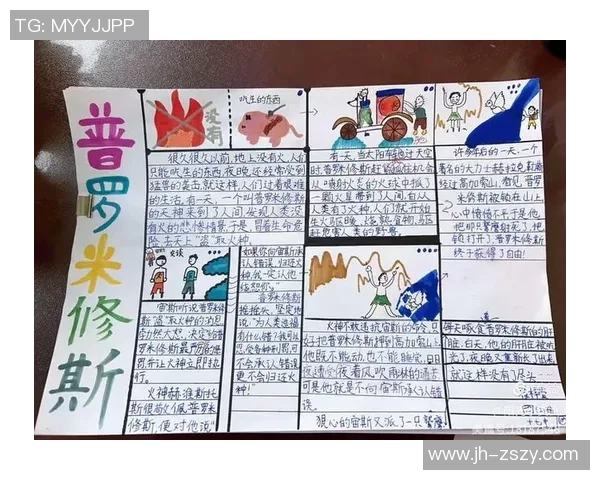 TG: MYYJJPP
普罗米修斯
没有
吃生的东西
很久很久以前,地上没有火,人们
只能吃生的东西,夜晚还经常受到
猛兽的袭击,就这样,人们过着艰难
的生活。有一天,一个叫普罗米修斯
的天神来到了人间,发现人类没
有火的悲惨情景,于是,冒着生命危
险,去天上“盗”取火种。
有一天,当太阳车经过天空
时,普罗米修斯赶
从喷射火炎的火球中抓了
一颗火星,带到了人间,自从
人类有了火种,人们就开始
生火取暖、烧熟食物、驱
赶危害人类的野兽。
许多年后的一天,一个
著名的大力士赫拉克
经过高加索山,看见普罗
米修斯被锁在山上,
心中愤愤不平,于是他
他即只鹫鹰射死了,把
锁打开了,普罗米修斯
终于获得了自由!
交谈
宙斯听说普罗米修
斯“盗”取火种的消息,
勃然大怒,决定给普
罗米修斯最严厉的惩
罚,并让火神立即执
行。
火神赫淮斯托
斯很敬佩普罗米
修斯,便对他说:“
如果你向宙斯承
认错误,归还火
种,我一定让他
饶恕你。”
普罗米修斯
摇摇头,坚定地
说:“为人类造福
有什么错?我可以
忍受各种刑罚,可
不会承认错误,
更不会归还火
种!”
火神不敢违抗宙斯的命令,只
好把普罗米修斯押到高加索山上,
他既不能动,也不能睡觉,日日
夜夜遭受着风吹雨淋的痛苦,
可是他就是不向宙斯承认错
误。
狠心的宙斯又派了一只鹫鹰,
每天啄食普罗米修斯的肝
脏,白天,他的肝脏被吃
光了,夜晚又重新长了出来,
就这样没有尽头……
www.jh-zszy.com